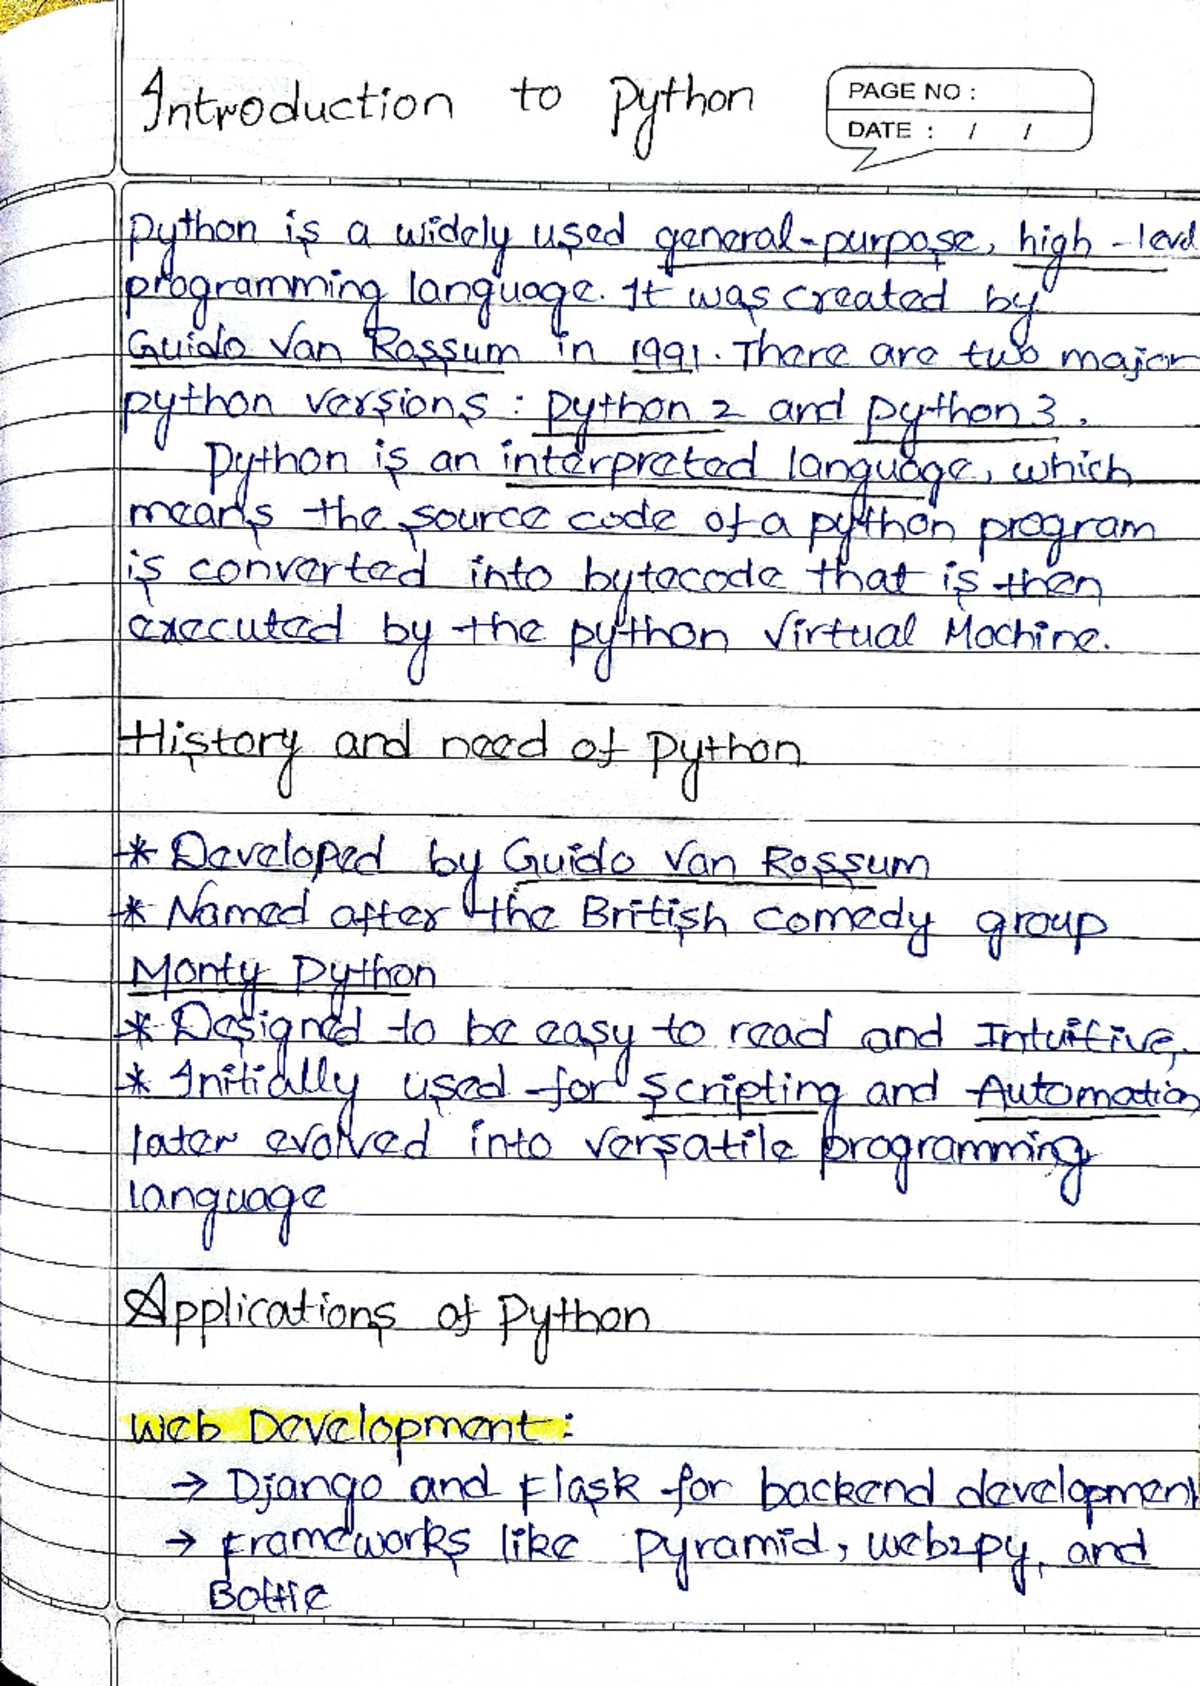 Introduction to Python
PAGE NO :
DATE : / /
Python is a widely used general-purpose, high-level
programming language. It was created by
Guido Van Rossum in 1991. There are two major
python versions : Python 2 and Python 3.
Python is an interpreted language, which
means the source code of a python program
is converted into bytecode that is then
executed by the python Virtual Machine.
History and need of Python
* Developed by Guido Van Rossum
* Named after the British comedy group
Monty Python
* Designed to be easy to read and Intuitive,
* Initially used for Scripting and Automation
later evolved into versatile programming
language
Applications of Python
Web Development :
→ Django and Flask for backend development
→ Frameworks like Pyramid, web2py, and
Bottle